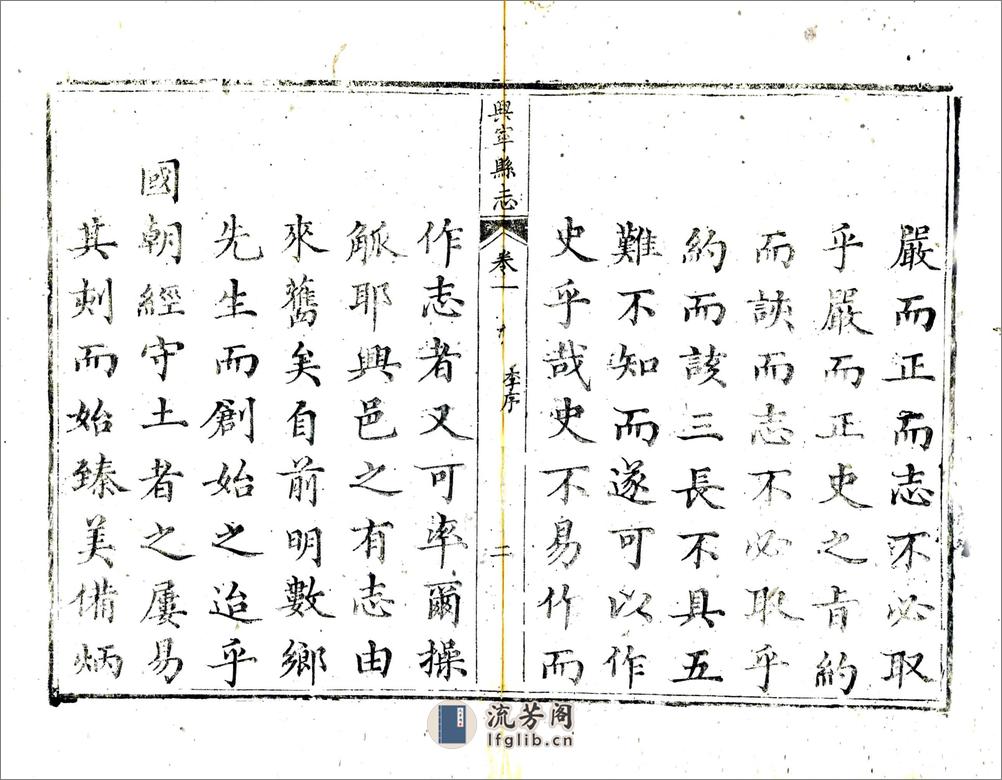 嚴而正而志不必取
乎嚴而正史之旨約
而該而志不必取乎
約而該三長不具五
難不知而遂可以作
史乎哉史不易作而
興寧縣志
卷一
李序
二
作志者又可率爾操
觚耶興邑之有志由
來舊矣自前明數鄉
先生而創始之迨乎
國朝經守土者之屢易
其刻而始臻美備炳
流芳阁
lfglib.cn